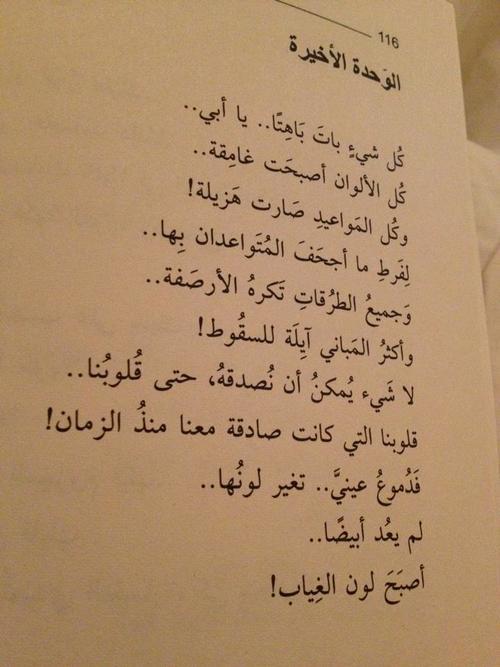 116
الوَحدة الأخيرة
كُل شيءٍ باتَ بَاهِتًا.. يا أبي..
كُل الألوان أصبحَت غامِقة..
وكُل المَواعيدِ صَارت هَزيلة!
لِفَرطِ ما أجحَفَ المُتَواعدان بِها..
وَجميعُ الطرُقاتِ تَكرهُ الأرصَفة..
وأكثرُ المَباني آيِلَة للسقُوط!
لا شَيء يُمكنُ أن نُصدقهُ، حتى قُلوبُنا..
قلوبنا التي كانت صادقة معنا منذُ الزمان!
فَدُموعُ عينيَّ.. تغير لونُها..
لم يعُد أبيضًا..
أصبَحَ لون الغِياب!